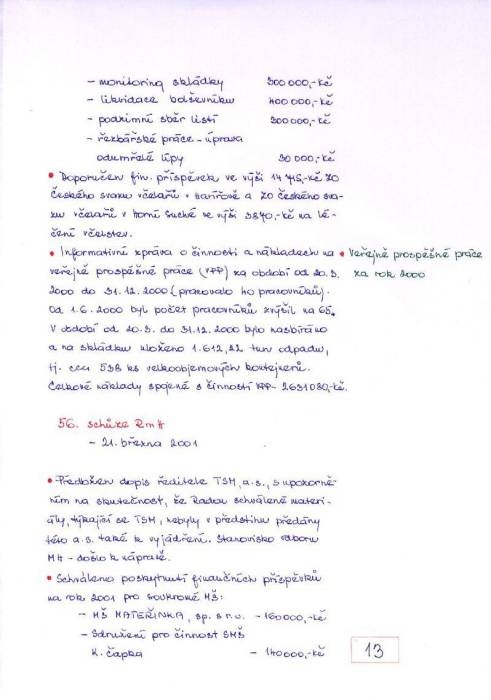 - monitoring skládky 300 000,-Kč
- likvidace bolševníku 400 000,-Kč
- podzimní sběr listí 300 000,-Kč
- řezbářské práce - úprava
odumřelé lípy 30 000,-Kč
• Doporučen fin. příspěvek ve výši 14 715,-Kč ZO
Českého svazu včelařů v Havířově a ZO Českého sva-
zu včelařů v Horní Suché ve výši 3870,-Kč na lé-
čení včelstev.
• Informativní zpráva o činnosti a nákladech na
veřejně prospěšné práce (VPP) za období od 20.3.
2000 do 31.12.2000 (pracovalo 40 pracovníků).
Od 1.6.2000 byl počet pracovníků zvýšil na 65.
V období od 20.3. do 31.12.2000 bylo nasbíráno
a na skládku uloženo 1.612,22 tun odpadu,
tj. cca 538 ks velkoobjemových kontejnerů.
Celkové náklady spojené s činností VPP - 2631080,-Kč.
• Veřejně prospěšné práce
za rok 2000
56. schůze RmH
- 21. března 2001
• Předložen dopis ředitele TSM, a.s., s upozorně-
ním na skutečnost, že Radou schválené materi-
ály, týkající se TSM, nebyly v předstihu předány
této a.s. také k vyjádření. Stanovisko odboru
MH - došlo k nápravě.
• Schváleno poskytnutí finančních příspěvků
na rok 2001 pro soukromé MŠ:
- MŠ MATEŘINKA, sp. s r.o. - 160000,-Kč
- Sdružení pro činnost SMŠ
K. Čapka - 140000,-Kč
13